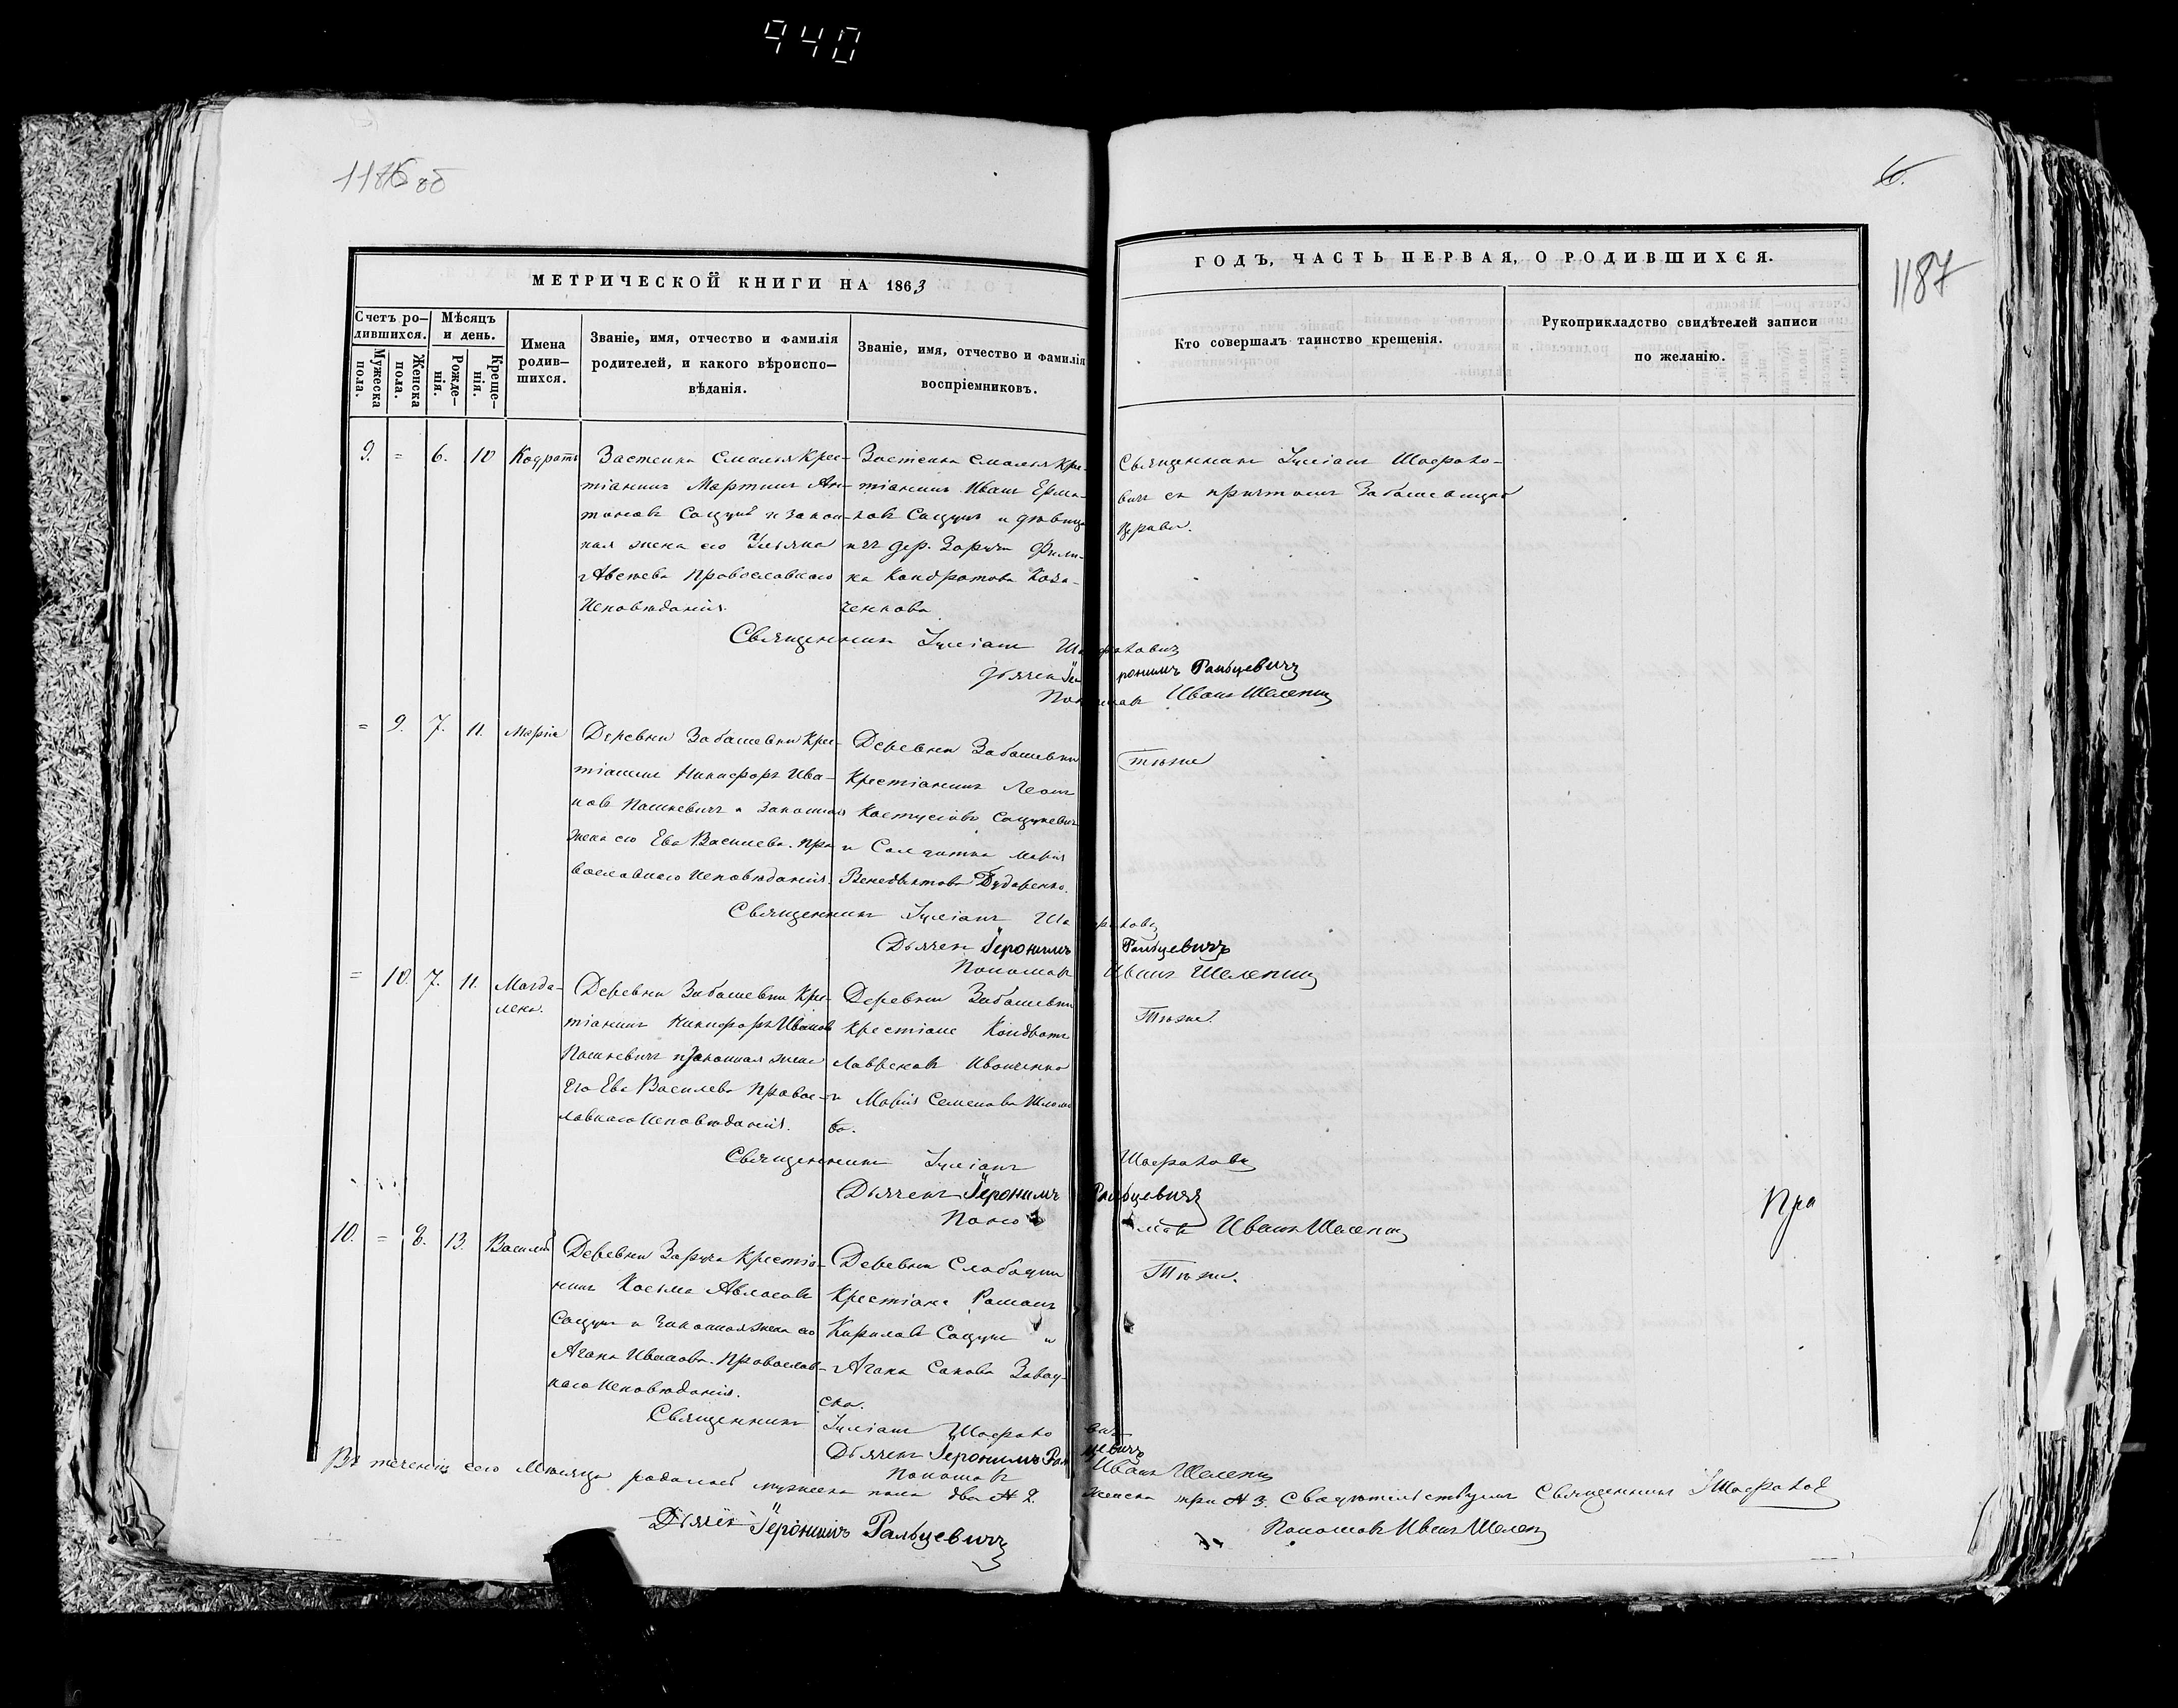 940
1186 об
6.
1187
МЕТРИЧЕСКОЙ КНИГИ НА 1863
ГОДЪ, ЧАСТЬ ПЕРВАЯ, О РОДИВШИХСЯ.
Счетъ ро-
дившихся.
Мужеска
пола.
Женска
пола.
Мѣсяцъ
и день.
Рожде-
нія.
Креще-
нія.
Имена
родив-
шихся.
Званіе, имя, отчество и фамилія
родителей, и какого вѣроиспо-
вѣданія.
Званіе, имя, отчество и фамилія
воспріемниковъ.
Кто совершалъ таинство крещенія.
Рукоприкладство свидѣтелей записи
по желанію.
9. = 6. 10 Кодратъ
Застенка Смалья Крес-
тіанинъ Мартинъ Ан-
тоновъ Сацукъ и закон-
ная жена его Ульяна
Авсеева Православнаго
Исповѣданія.
Застенка Смалья Кре-
тіанинъ Иванъ Ерма-
ковъ Сацукъ и дѣвица
изъ дер. Заручья
ка Кондратова Коза-
ченкова
Священникъ Іуліанъ Шафрано-
вичъ съ причтомъ Забашевицкой
Церкви.
Священникъ Іуліанъ Шафрановичъ
Дьячекъ Іеронимъ Ральцевичъ
Пономаръ Иванъ Шелепинъ
= 9. 7. 11. Марія
Деревни Забашевки Крес-
тіанинъ Никифоръ Ива-
новъ Пашкевичъ и Законная
жена его Ева Василева. Пра
вославнаго Исповѣданія.
Деревни Забашевки
Крестіанинъ Леонъ
Костусіовъ Сацукевичъ
и Салдатка Марія
Венедыктова Бударенко.
Тѣже
Священникъ Іуліанъ Шафрановъ
Дьячекъ Іеронимъ Ральцевичъ
Пономаръ Иванъ Шелепинъ
= 10. 7. 11. Магда-
лена.
Деревни Забашевки Крес-
тіанинъ Никифоръ Ивановъ
Пашкевичъ и Законная жена
Его Ева Василева Правос-
лавнаго Исповѣданія.
Деревни Забашевки
Крестіане Кондратъ
Лавреновъ Иванченко
и Марія Семенова
ва.
Тѣже.
Священникъ Іуліанъ Шафрановъ
Дьячекъ Іеронимъ Ральцевичъ
Пономаръ Иванъ Шелепинъ
Пра
10. = 8. 13. Василій
Деревни Заручья Крестіа-
нинъ Косьма Авласовъ
Сацукъ и Законная жена его
Агапа Иванова. Православ-
наго Исповѣданія.
Деревни Слабодки
Крестіане Романъ
Кириловъ Сацукъ и
Агапа Савова Завад-
ска.
Тѣже.
Священникъ Іуліанъ Шафрановичъ
Дьячекъ Іеронимъ Ральцевичъ
Пономаръ Иванъ Шелепинъ
Въ теченіи сего Мѣсяца родилось мужеска пола два № 2. Женска три № 3. Свидѣтельствуемъ Священникъ І Шафранов
Дьячекъ Іеронимъ Ральцевичъ
Пономаръ Иванъ Шелеп